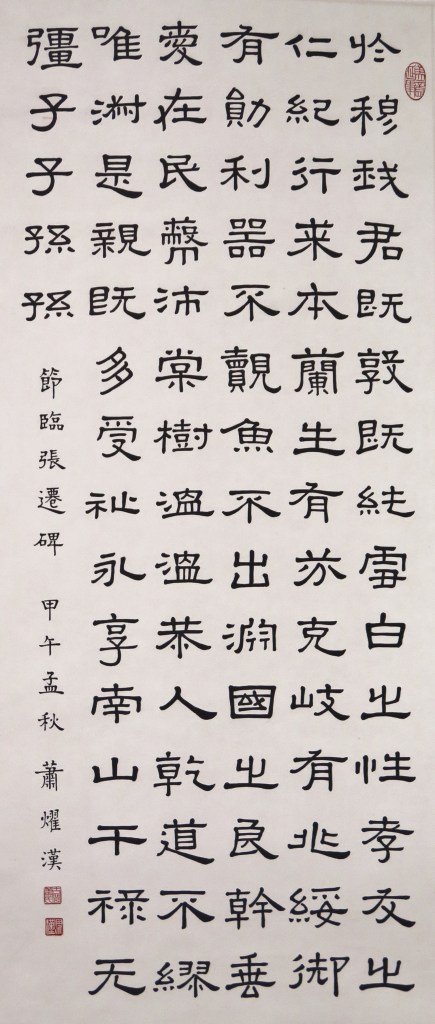 於穆我君既敦既純雪白之性孝友之
仁紀行来本蘭生有芬克岐有兆綏御
有勛利器不覿魚不出淵國之良幹垂
愛在民幣沛棠樹温温恭人乾道不繆
唯淑是親既多受祉永享南山干禄无
彊子子孫孫
節臨張遷碑 甲午孟秋 蕭燿漢